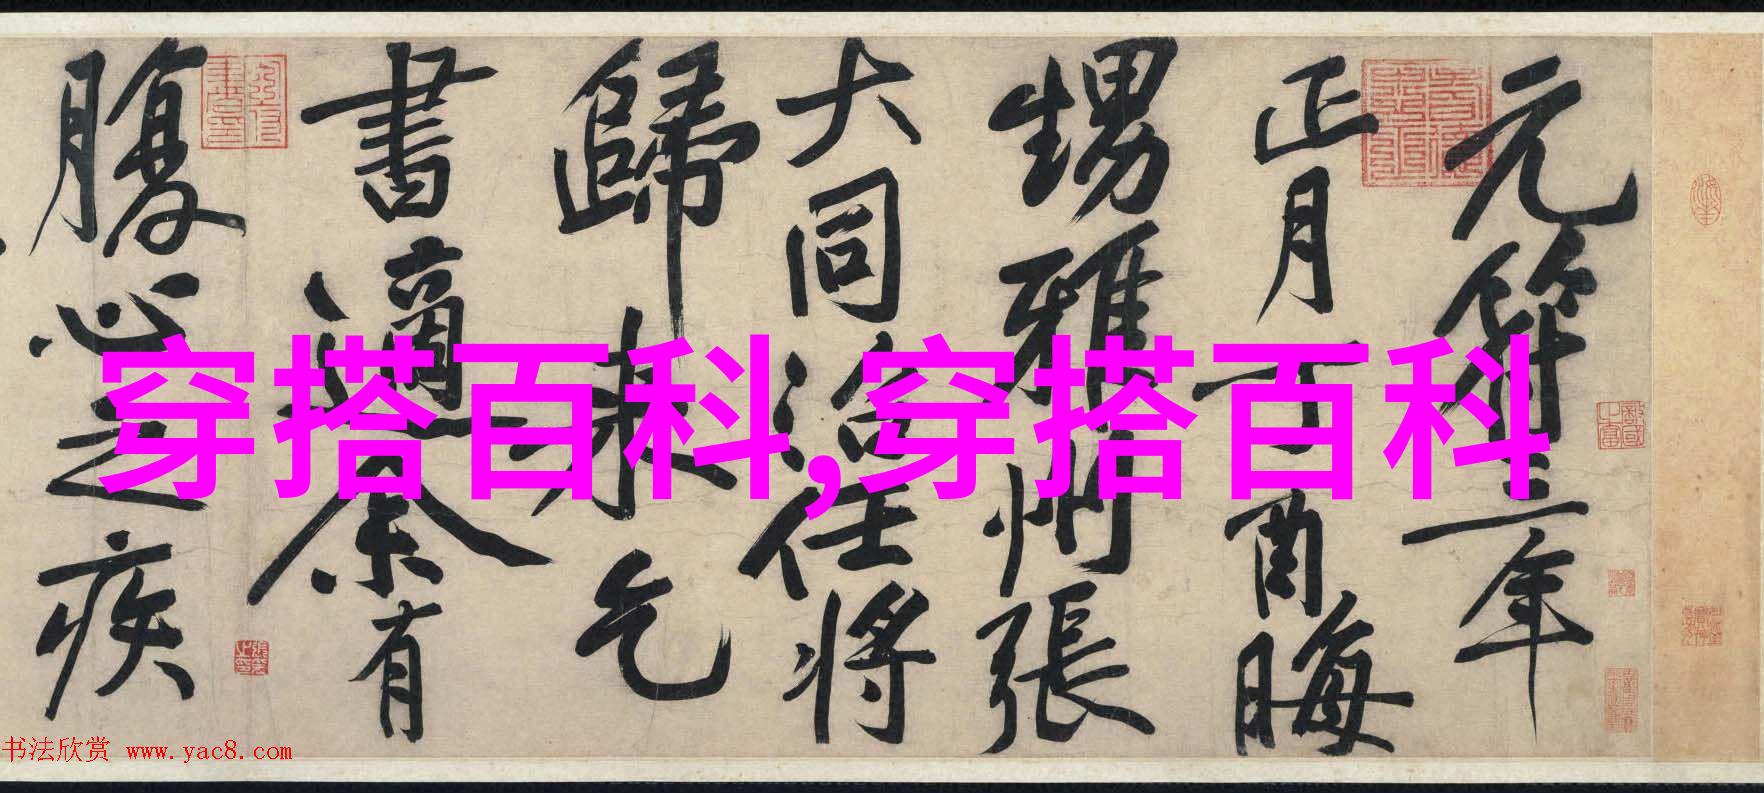 元符三年
正月丁酉晦
甥雅州張
大同治任將
歸來乞
書適余有
腹心之疾
穿搭百科,穿搭百科
书法欣赏 www.yac8.com